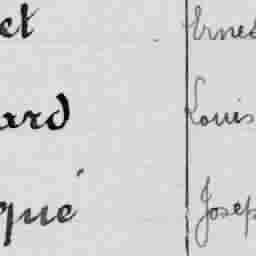 et Ernes
ard Louis
qué Josep